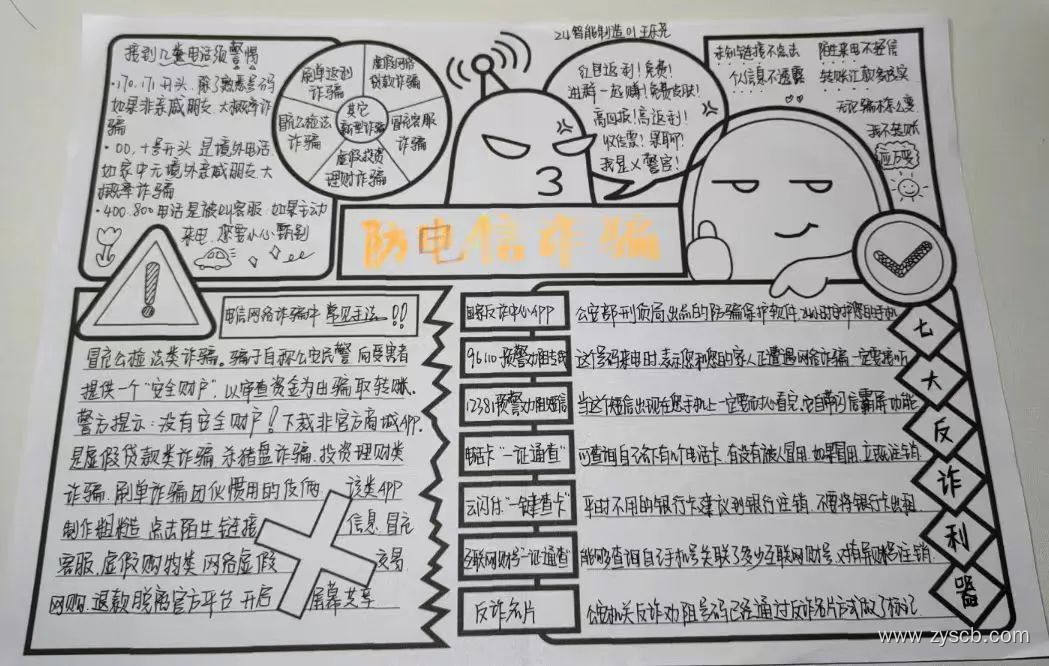 24智能制造01 王乐尧
接到几类电话须警惕
·170.171开头.除了熟悉号码
如果非亲戚朋友.大概率诈
骗
·00.+号开头 是境外电话.
如家中无境外亲戚朋友.大
概率诈骗
·400.800电话是被叫客服.如果主动
来电.您要小心甄别
刷单返利
诈骗
虚假网络
贷款诈骗
冒充公检法
诈骗
其它
新型诈骗
冒充客服
诈骗
虚假投资
理财诈骗
红包返利!免费!
进群一起赚!免费皮肤!
高回报!高返利!
收信票!录聊!
我是义警官!
未知链接不点击
陌生来电不轻信
个人信息不透露
转账汇款多核实
无论骗术怎么变
我不转账
应万变
防电信诈骗
电信网络诈骗中 常见手法!!
冒充公检法类诈骗.骗子自称公安民警 向受害者
提供一个“安全财户”.以审查资金为由骗取转账.
警方提示:没有安全财户!下载非官方商城APP.
是虚假贷款类诈骗.杀猪盘诈骗.投资理财类
诈骗.刷单诈骗团伙惯用的伎俩 该类APP
制作粗糙 点击陌生链接 信息 冒充
客服.虚假购物类 网络虚假 交易
网购.退款脱离官方平台 开启 屏幕共享
国家反诈中心APP
公安部刑侦局出品的防骗保护软件.24小时守护您的手机
96110预警劝阻专线
这个号码来电时.表示您和您的家人正遭遇网络诈骗 一定要接听
12381预警劝阻短信
当这个短信出现在您手机上一定要耐心看完.它自带闪信霸屏功能
电话卡“一证通查”
可查询自己名下有几个电话卡.有没有被人冒用.如果冒用.立即注销
云闪付“一键查卡”
平时不用的银行卡建议到银行注销.不要将银行卡出租
互联网账号“一证通查”
能够查询自己手机号关联了多少互联网账号.对异常账号注销.
反诈名片
公安机关反诈劝阻号码已经通过反诈名片式做了标记
七
大
反
诈
利
器
www.zyscb.com